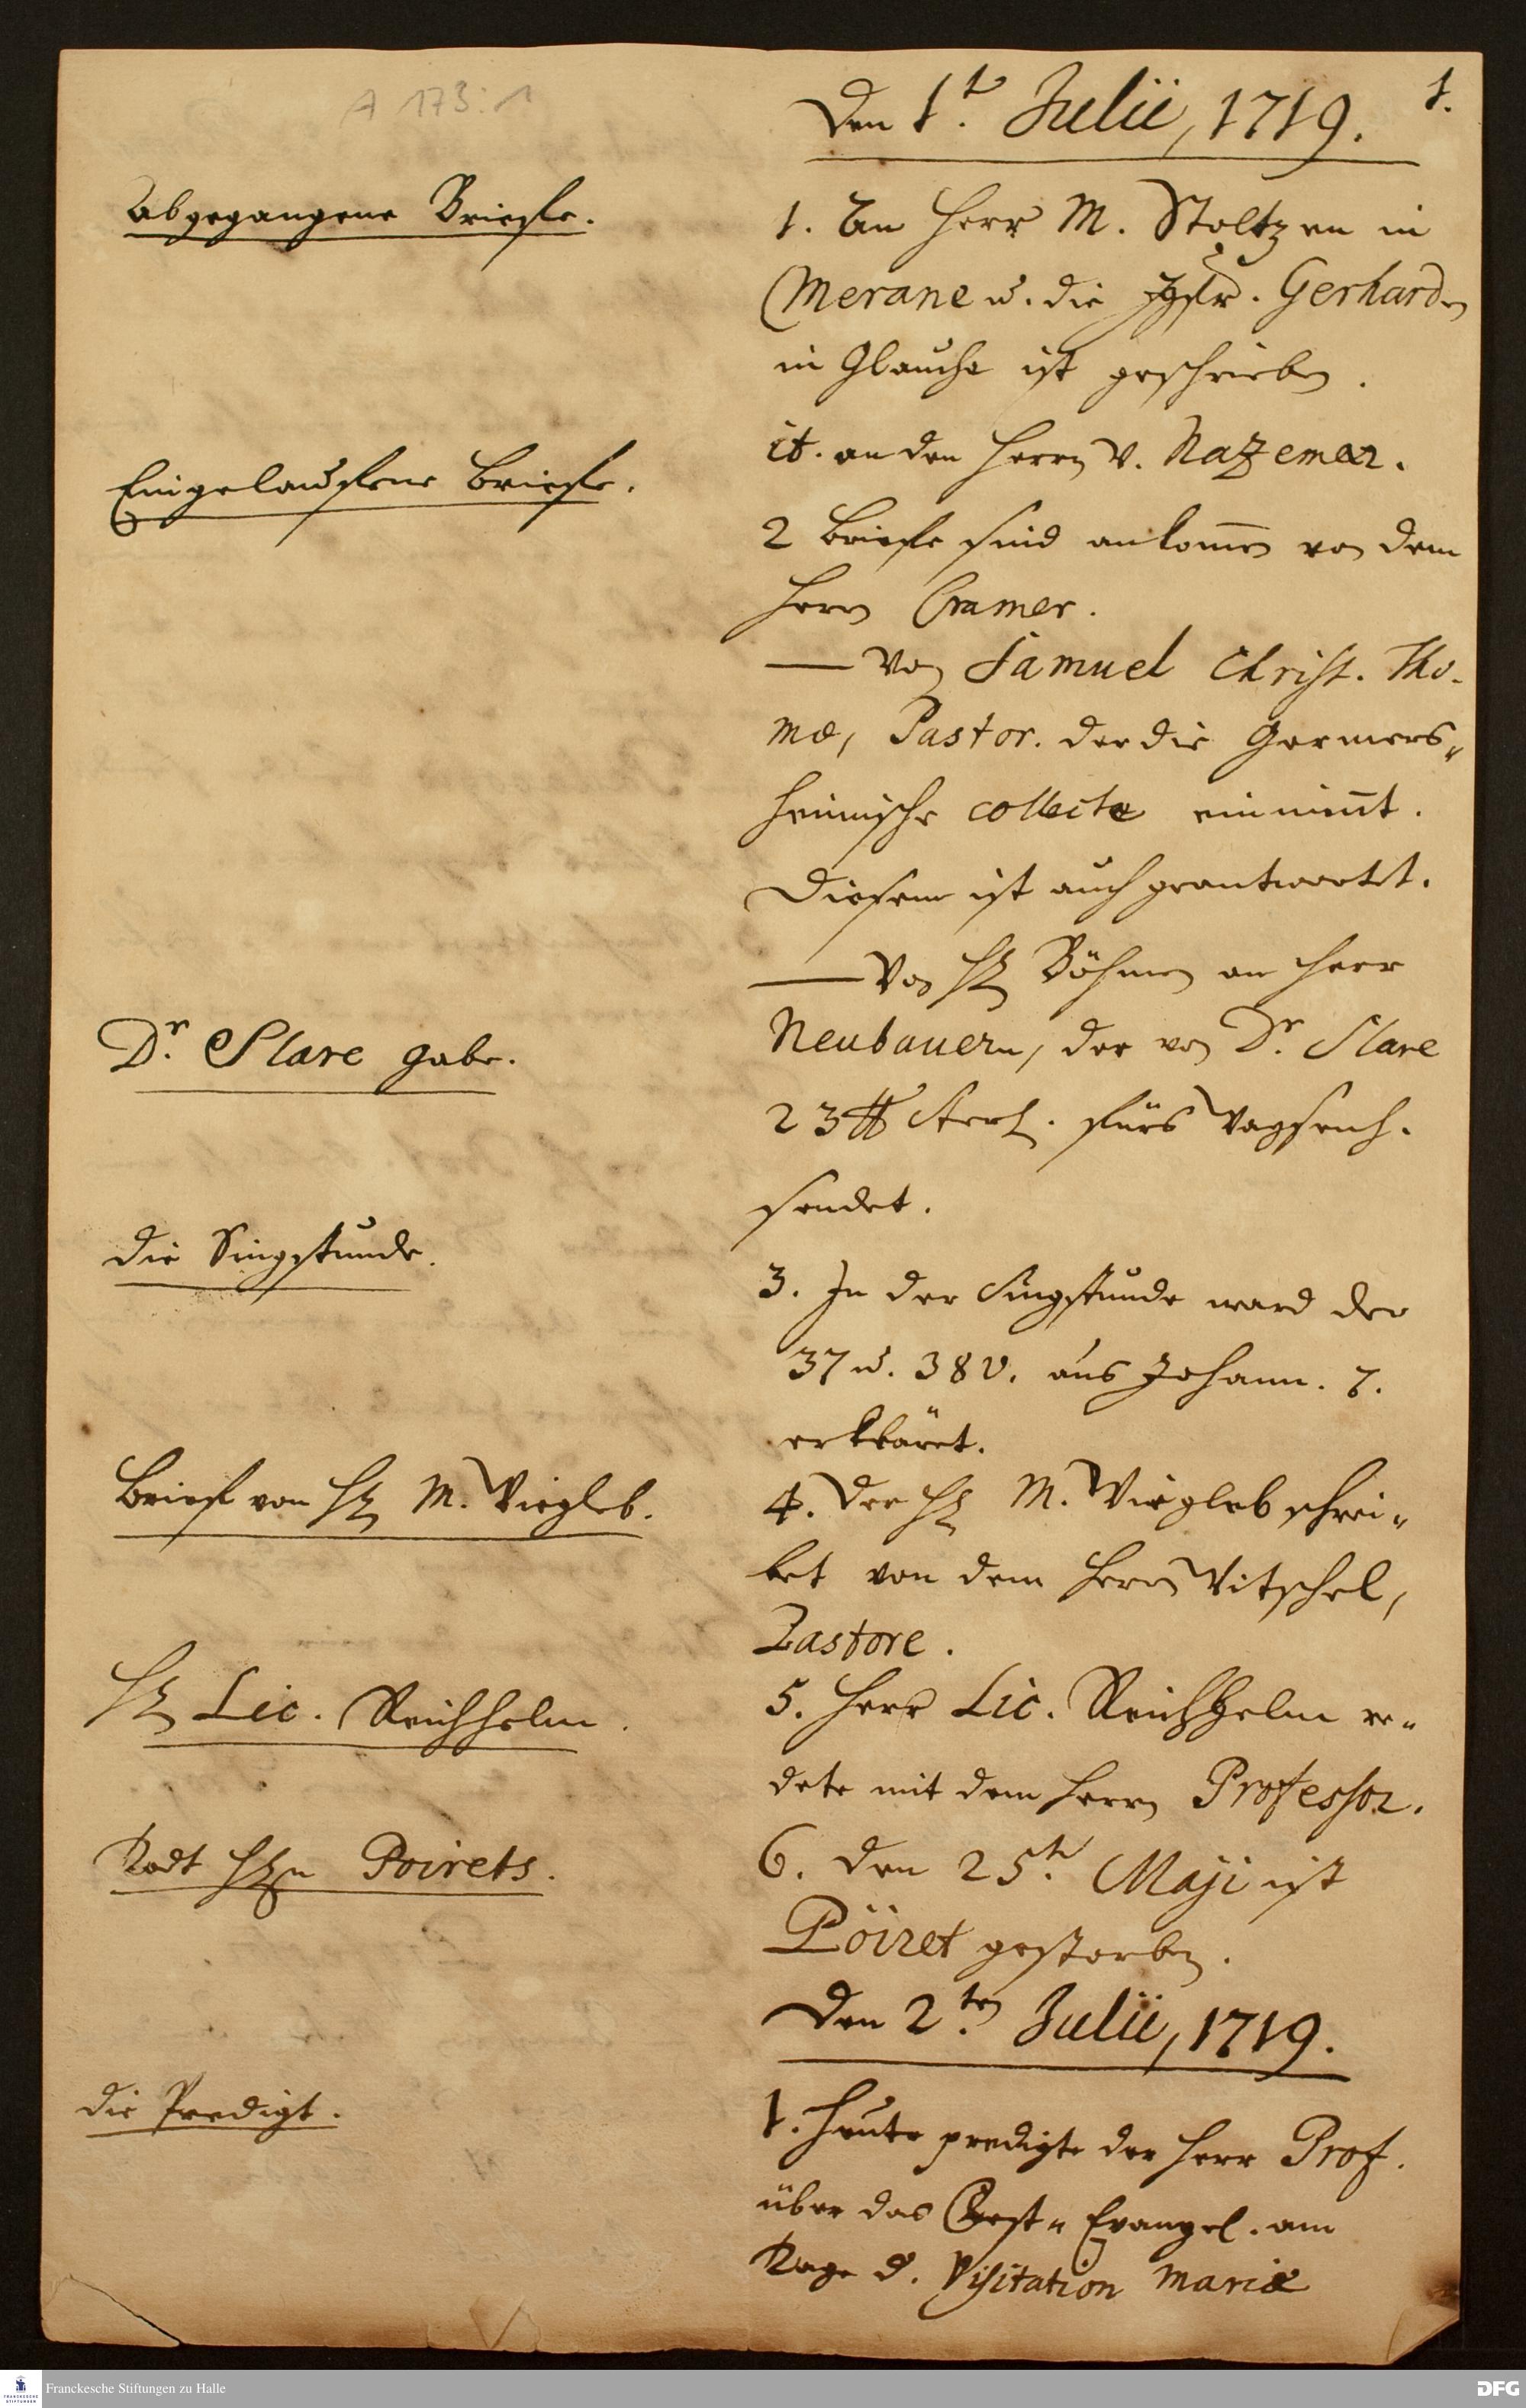 A 173:1
1.
Den 1.t Julii, 1719.
Abgegangene Briefe.
1. An Herr M. Stoltzen in
Merane u. die Jgfr. Gerhardn
in Glaucha ist geschrieben.
it. an den Herrn v. Nazemer.
Eingelauffene Briefe.
2 Briefe sind ankom̄en von dem
Herrn Cramer.
— Von Samuel Christ. Tho-
mæ, Pastor. der die Germers„
heimische collecte einnim̄t.
Diesem ist auch geantwortet.
— Von H. Böhmen an Herr
Neubauern, der von Dr. Slare
Dr. Slare Gabe.
23 ℔ Sterl. fürs Waysenh.
sendet.
Die Singstunde.
3. In der Singstunde ward der
37 u. 38 v. aus Johann. 7.
erkläret.
Brief von H. M. Wiegleb.
4. Der H. M. Wiegleb schrei„
bet von dem Herrn Witschel,
Pastore.
H. Lic. Reichhelm.
5. Herr Lic. Reichhelm re„
dete mit dem Herrn Professor.
Todt H.n Poirets.
6. Den 25.t Maji ist
Pöiret gestorben.
Den 2.ten Julii, 1719.
Die Predigt.
1. Heute predigte der Herr Prof.
über das Fest„ Evangel. am
Tage d. Visitation Mariæ
Franckesche Stiftungen zu Halle
DFG